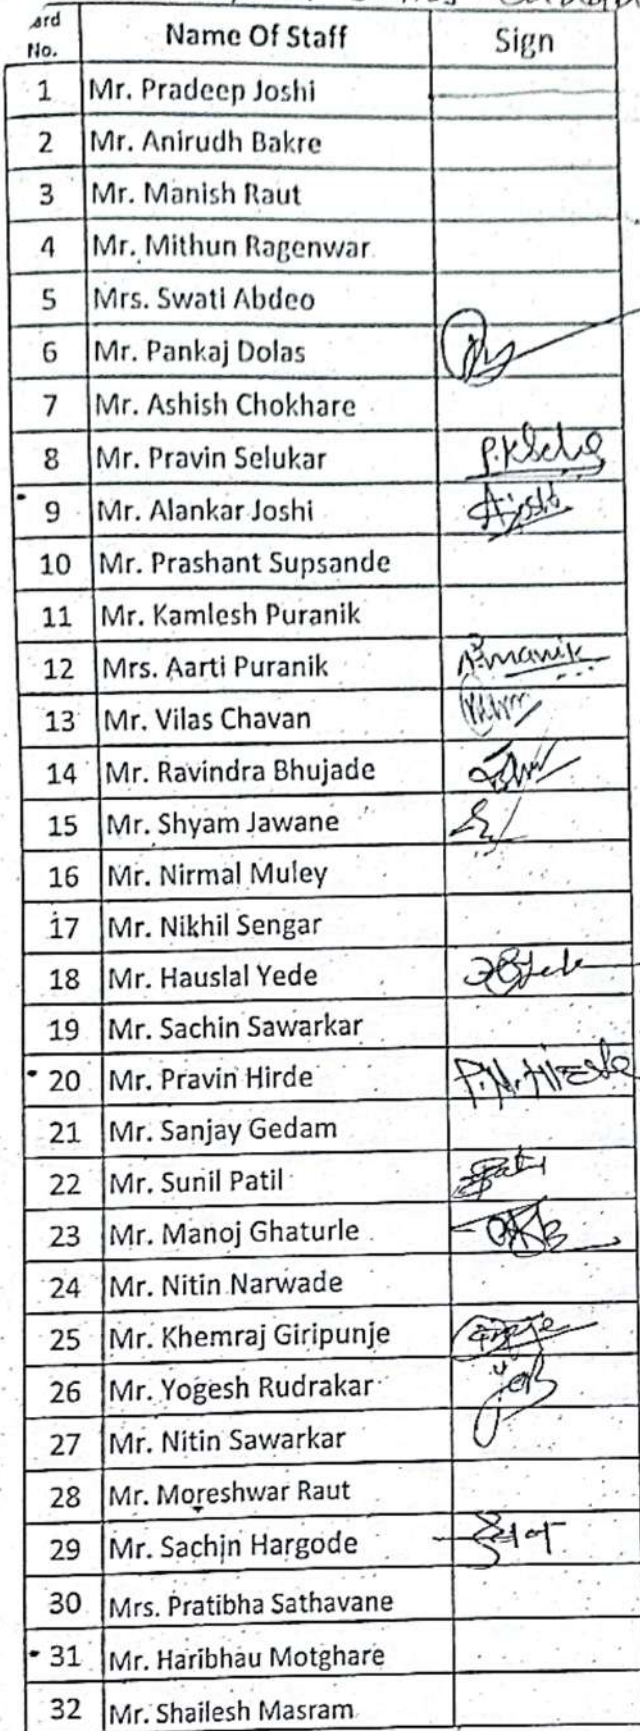 ard No. Name Of Staff Sign
1 Mr. Pradeep Joshi
2 Mr. Anirudh Bakre
3 Mr. Manish Raut
4 Mr. Mithun Ragenwar
5 Mrs. Swati Abdeo
6 Mr. Pankaj Dolas
7 Mr. Ashish Chokhare
8 Mr. Pravin Selukar
9 Mr. Alankar Joshi Ajoshi
10 Mr. Prashant Supsande
11 Mr. Kamlesh Puranik
12 Mrs. Aarti Puranik
13 Mr. Vilas Chavan
14 Mr. Ravindra Bhujade
15 Mr. Shyam Jawane
16 Mr. Nirmal Muley
17 Mr. Nikhil Sengar
18 Mr. Hauslal Yede
19 Mr. Sachin Sawarkar
20 Mr. Pravin Hirde P.N.Hirde
21 Mr. Sanjay Gedam
22 Mr. Sunil Patil
23 Mr. Manoj Ghaturle
24 Mr. Nitin Narwade
25 Mr. Khemraj Giripunje
26 Mr. Yogesh Rudrakar
27 Mr. Nitin Sawarkar
28 Mr. Moreshwar Raut
29 Mr. Sachin Hargode
30 Mrs. Pratibha Sathavane
31 Mr. Haribhau Motghare
32 Mr. Shailesh Masram